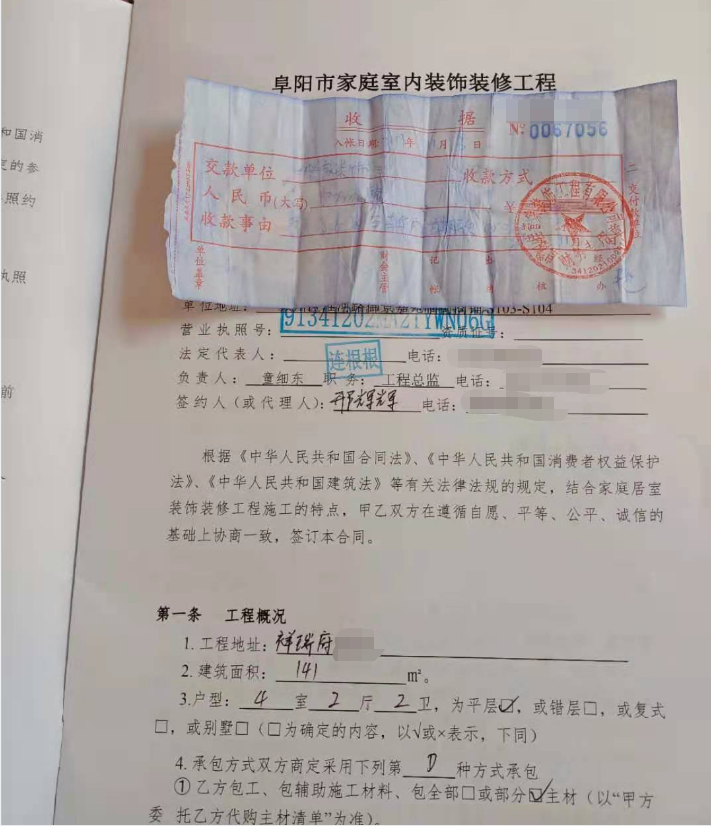 和国消
定的参
照约
执照
前
阜阳市家庭室内装饰装修工程
收 据
入帐日期 年 月 日
№ 0067056
交款单位 收款方式
人民币(大写) ¥
收款事由
单位盖章 财会主管 记帐 出纳 审核 经办
单位地址: S103-S104
营业执照号: 资质证号:
法定代表人: 连根根 电话:
负责人: 童细东 职务: 工程总监 电话:
签约人(或代理人): 邢辉辉 电话:
根据《中华人民共和国合同法》、《中华人民共和国消费者权益保护
法》、《中华人民共和国建筑法》等有关法律法规的规定,结合家庭居室
装饰装修工程施工的特点,甲乙双方在遵循自愿、平等、公平、诚信的
基础上协商一致,签订本合同。
第一条 工程概况
1.工程地址: 祥瑞府
2.建筑面积: 141 m²。
3.户型: 4 室 2 厅 2 卫,为平层☑,或错层□,或复式
□,或别墅□(□为确定的内容,以√或×表示,下同)
4.承包方式双方商定采用下列第 种方式承包
①乙方包工、包辅助施工材料、包全部□或部分☑主材(以“甲方
委 托乙方代购主材清单”为准)。